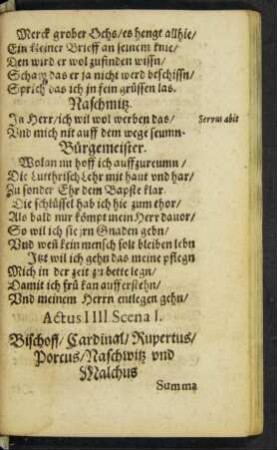 Merck grober Ochs/es hengt allhie/
Ein kleiner Brieff an seinem knie/
Den wird er wol zufinden wissn/
Schaw das er ja nicht werd beschissn/
Sprich das ich jn fein grüssen las.
Naschmitz.
Ja Herr/ich wil wol werben das/ Servus abit
Vnd mich nit auff dem wege seumn.
Bürgemeister.
Wolan nu hoff ich auffzureumn/
Die Lutthrisch Lehr mit haut vnd har/
Zu sonder Ehr dem Bapste klar
Die schlüssel hab ich hie zum thor/
Als bald nur kömpt mein Herr dauor/
So wil ich sie jrn Gnaden gebn/
Vnd weñ kein mensch solt bleiben lebn
Jtzt wil ich gehn das meine pflegn
Mich in der zeit zu bette legn/
Damit ich frü kan aufferstehn/
Vnd meinem Herrn entlegen gehn/
Actus IIII Scena I.
Bischoff/Cardinal/Rupertus/
Porcus/Naschwitz vnd
Malchus
Summa